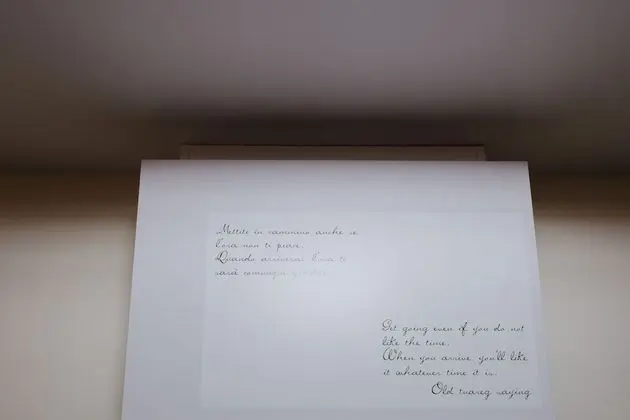 Mettiti in cammino anche se
l'ora non ti piace.
Quando arriverai l'ora ti
sarà comunque
Get going even if you do not
like the time.
When you arrive, you'll like
it whatever time it is.
Old tuareg saying